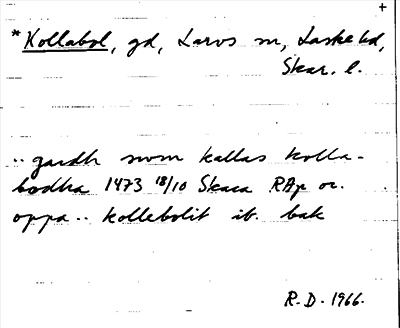 +
*Kollabol, gd, Larvs sn, Laske hd,
Skar. l.
.. gardh som kallas kolla-
bodha 1473 18/10 Skara RAp or.
oppa .. kollebolit ib. bak
R.D. 1966.